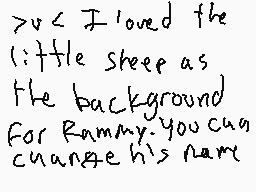 >v< I loved the
little sheep as
the background
For Rammy. You can
change his name